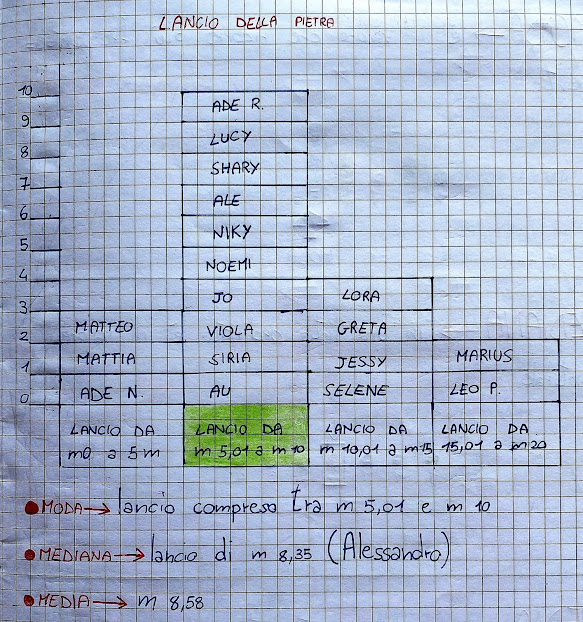 LANCIO DELLA PIETRA
10 ADE R.
9 LUCY
8 SHARY
7 ALE
6 NIKY
5 NOEMI
4 JO LORA
3 MATTEO VIOLA GRETA
2 MATTIA SIRIA JESSY MARIUS
1 ADE N. AU SELENE LEO P.
0
LANCIO DA LANCIO DA LANCIO DA LANCIO DA
m0 a 5m m 5,01 a m 10 m 10,01 a m 15 15,01 a m 20
MODA → lancio compreso tra m 5,01 e m 10
MEDIANA → lancio di m 8,35 (Alessandro)
MEDIA → m 8,58